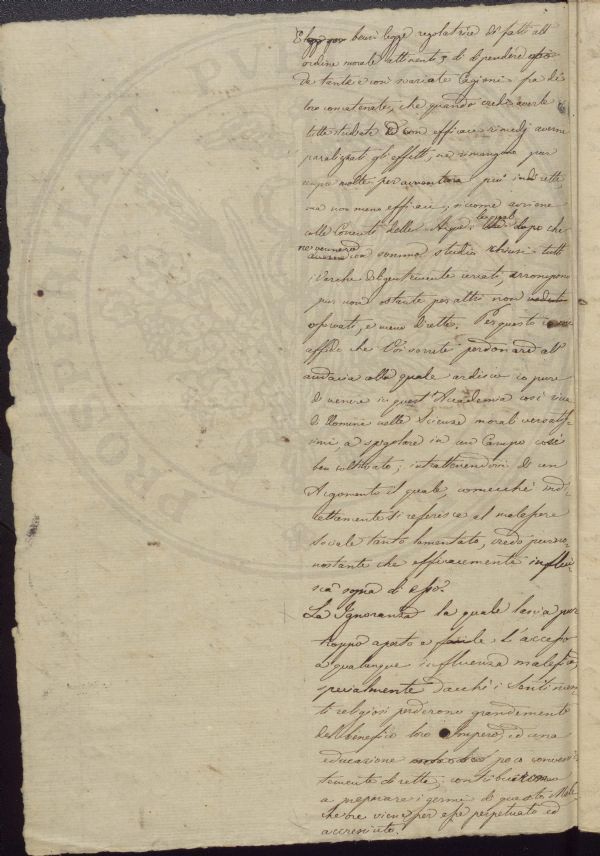 E ben legge regolatrice di fatti all'
ordine morale attinenti, di dipendere
da tante e con svariate Cagioni fra di
loro concatenate, che quando credi averle
tutte studiate e con efficaci rimedj averne
paralizzati gli effetti, ne rimangono pur
sempre molte per avventura più indirette,
ma non meno efficaci, siccome avviene
colle Correnti delle Acque, le quali dopo che
ne vennero con sommo studio chiusi tutti
i Varchi diligentemente cercati, irrompono
pur non ostante per altri non
osservati, e meno diretti. Per questo
affido che Voi vorrete perdonare all'
audacia colla quale ardisco io pure
di venire in quest'Accademia così ricca
di Uomini nelle Scienze morali versatis-
simi, a spigolare in un Campo così
ben coltivato; intrattenendovi di un
Argomento il quale, comecché indi-
rettamente si riferisca al malessere
sociale tanto lamentato, credo pur non
nostante che efficacemente influi-
sca sopra di esso.
La Ignoranza la quale lascia pur
troppo aperto e facile l'accesso
a qualunque influenza malefica,
specialmente dacchè i Sentimen-
ti religiosi perderono grandemente
del benefico loro Impero, ed una
educazione poco convenien-
temente diretta, contribuirono
a preparare i germi di questo Male
che ora viene per esse perpetuato ed
accresciuto.
PRO
PVPI